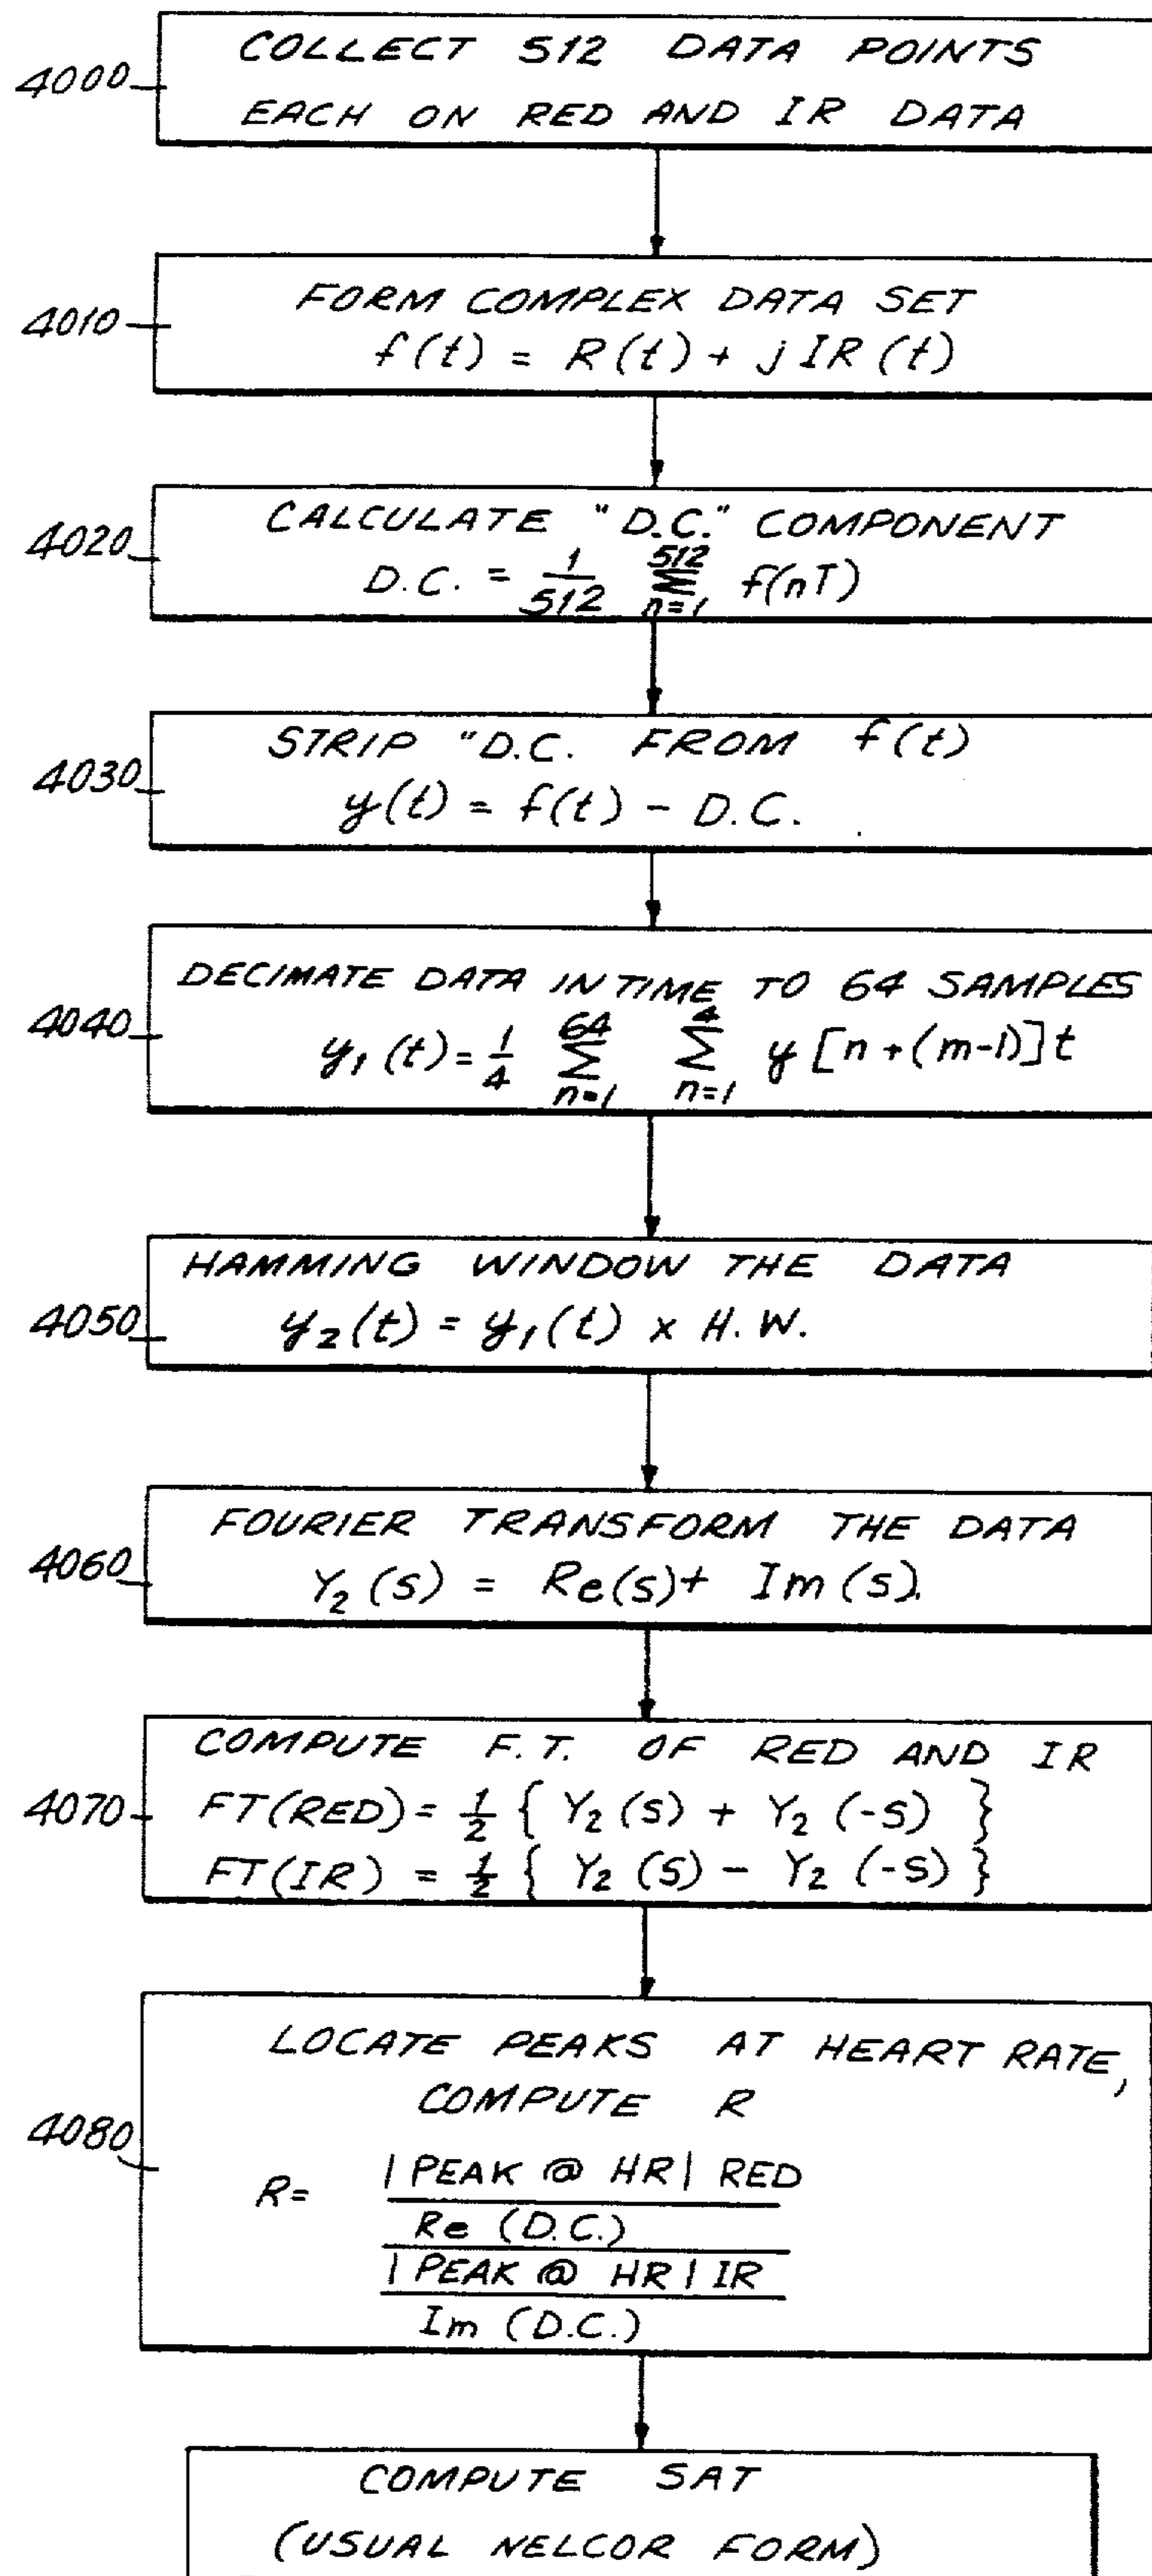 4000
COLLECT 512 DATA POINTS
EACH ON RED AND IR DATA
4010
FORM COMPLEX DATA SET
f(t) = R(t) + j IR (t)
4020
CALCULATE "D.C." COMPONENT
D.C. = 1/512 512 Σ n=1 f(nT)
4030
STRIP "D.C. FROM f(t)
y(t) = f(t) - D.C.
4040
DECIMATE DATA IN TIME TO 64 SAMPLES
y₁ (t) = 1/4 64 Σ n=1 4 Σ n=1 y [n + (m-1)] t
4050
HAMMING WINDOW THE DATA
y₂(t) = y₁(t) x H.W.
4060
FOURIER TRANSFORM THE DATA
Y₂ (s) = Re(s)+ Im (s).
4070
COMPUTE F.T. OF RED AND IR
FT(RED) = 1/2 { Y₂ (s) + Y₂ (-s) }
FT(IR) = 1/2 { Y₂ (s) - Y₂ (-s) }
4080
LOCATE PEAKS AT HEART RATE,
COMPUTE R
R=
| PEAK @ HR | RED
Re (D.C.)
| PEAK @ HR | IR
Im (D.C.)
COMPUTE SAT
(USUAL NELCOR FORM)